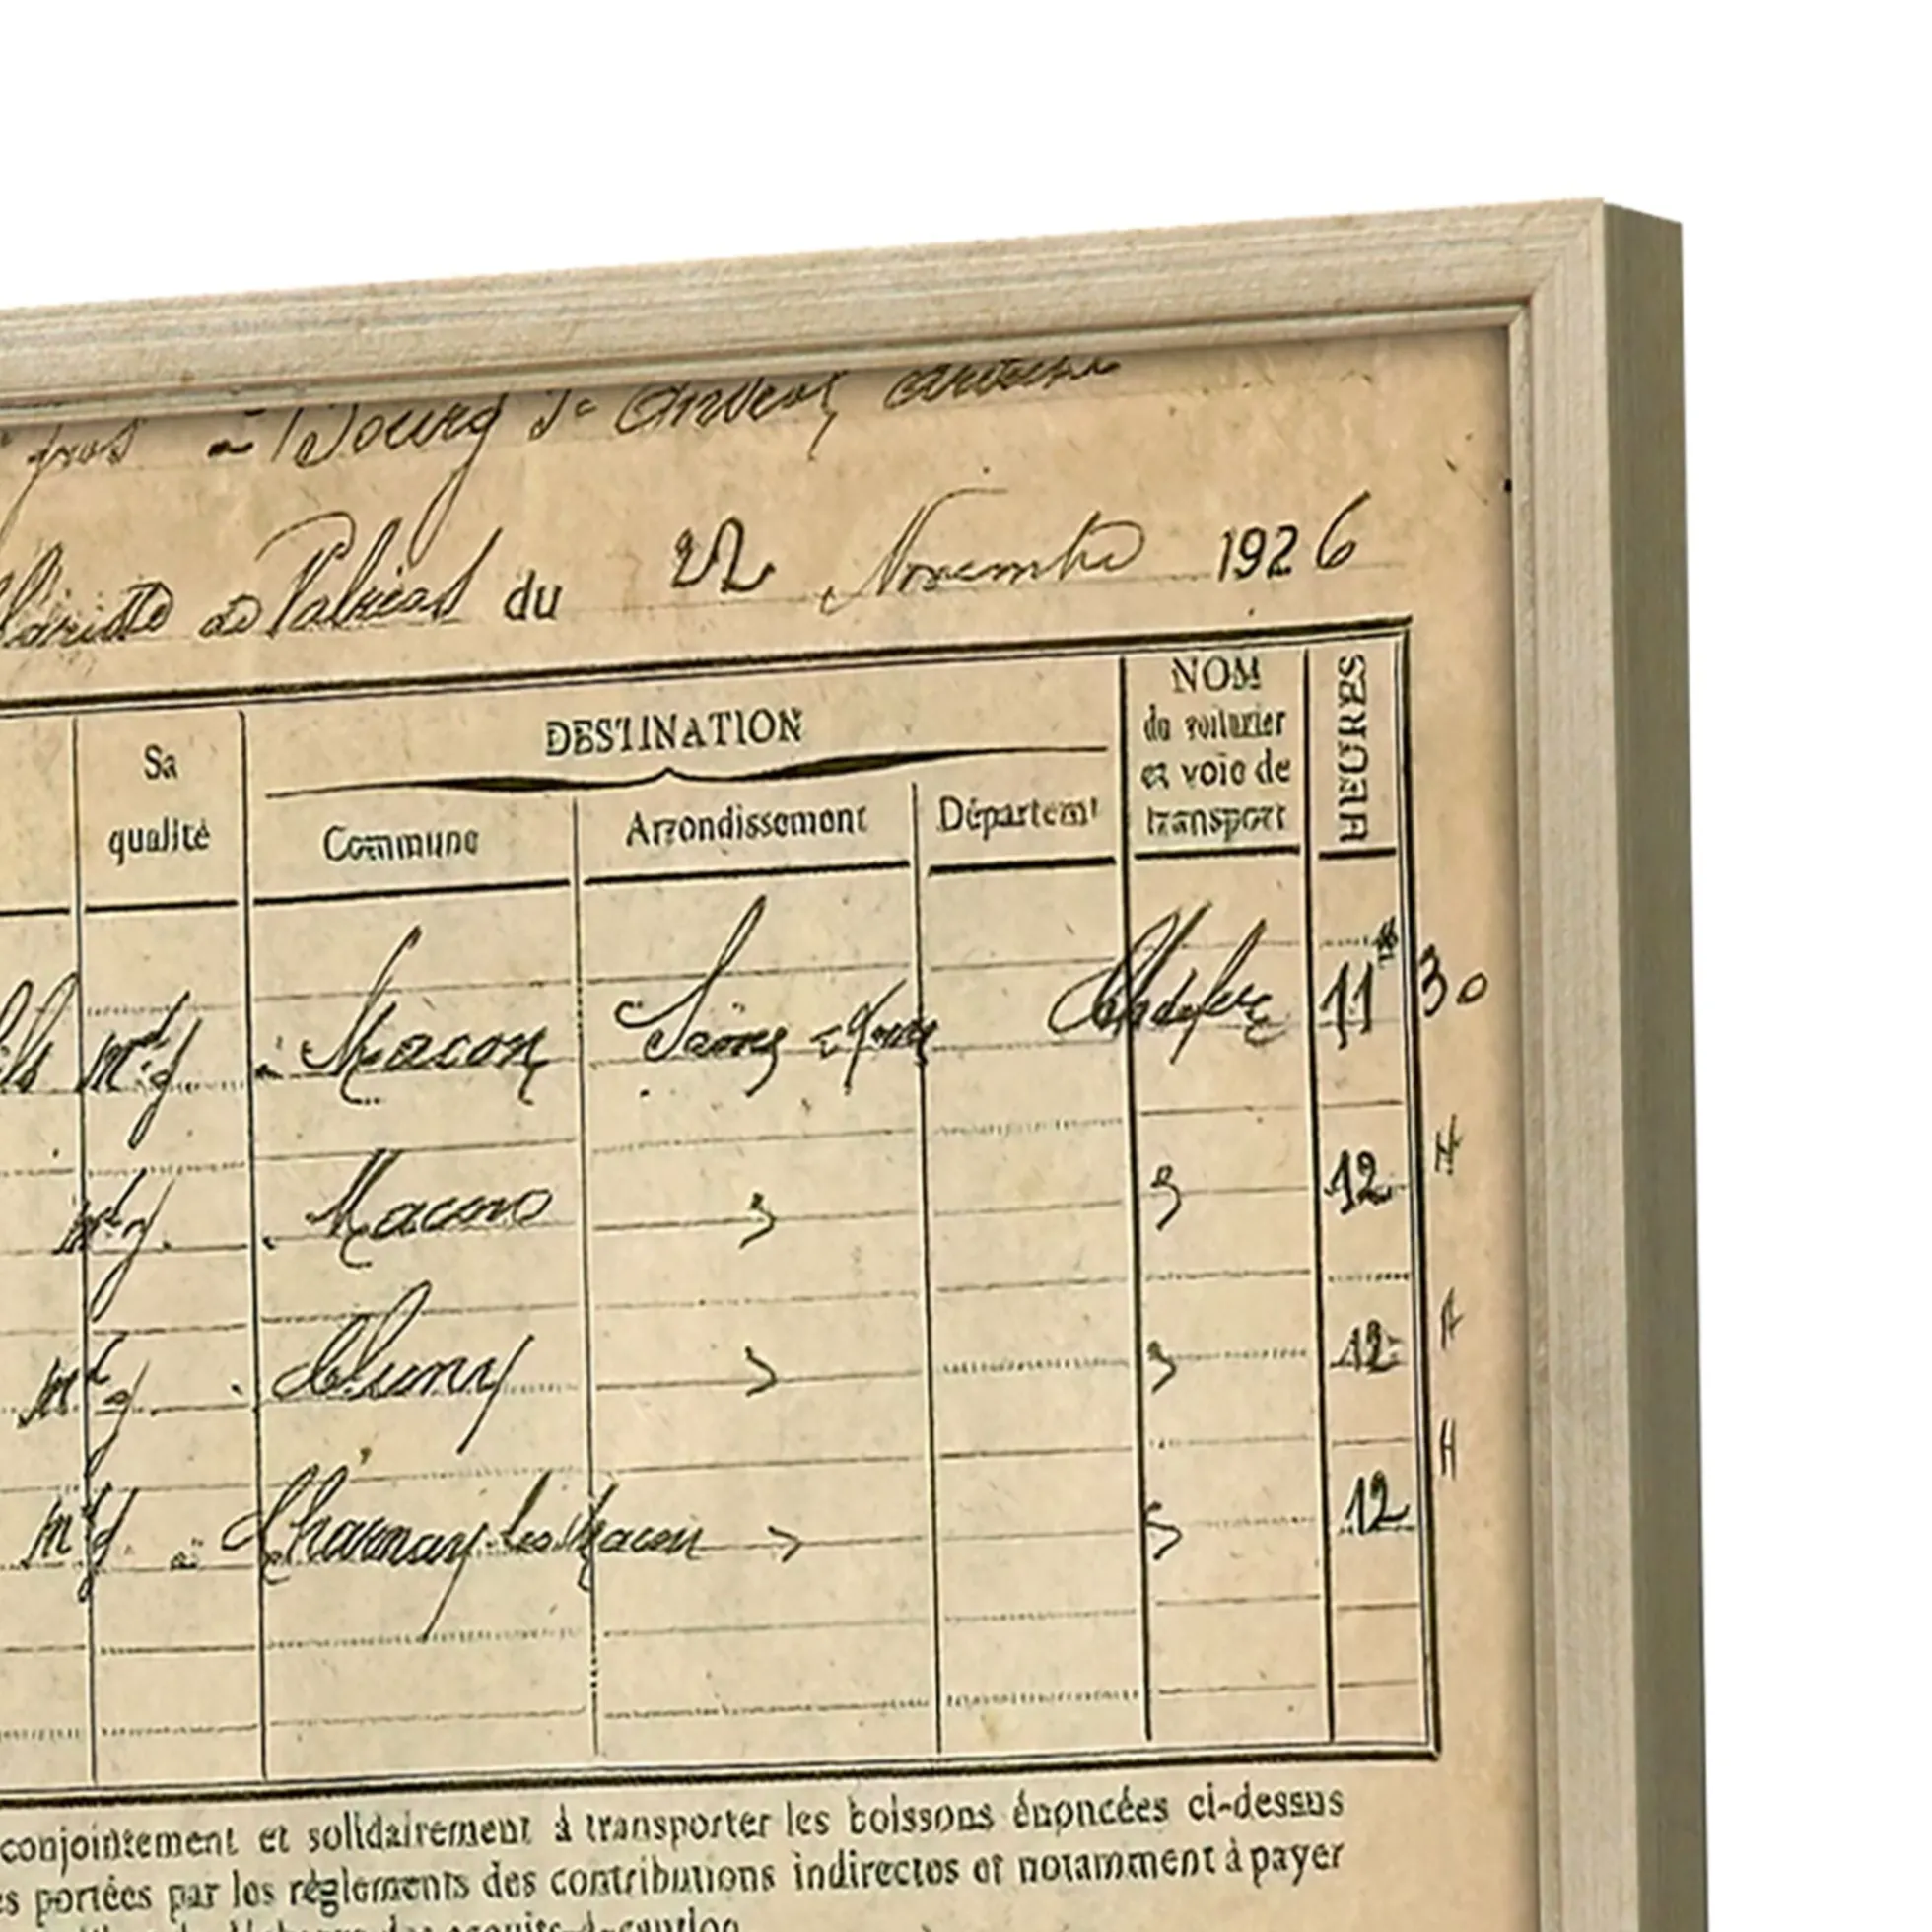 à Bourg St Andéol
du 22 Novembre 1926
Sa qualité
DESTINATION
Commune
Arrondissement
Départemt
NOM
du voiturier
et voie de
transport
HEURES
Md g à Macon Saône & Loire Ch de fer 11 H 30
Md g à Macon " " 12 H
Md g à Cluny " " 12 H
Md g à Charnay-les-Macon " " 12 H
conjointement et solidairement à transporter les boissons énoncées ci-dessus
portées par les règlements des contributions indirectes et notamment à payer